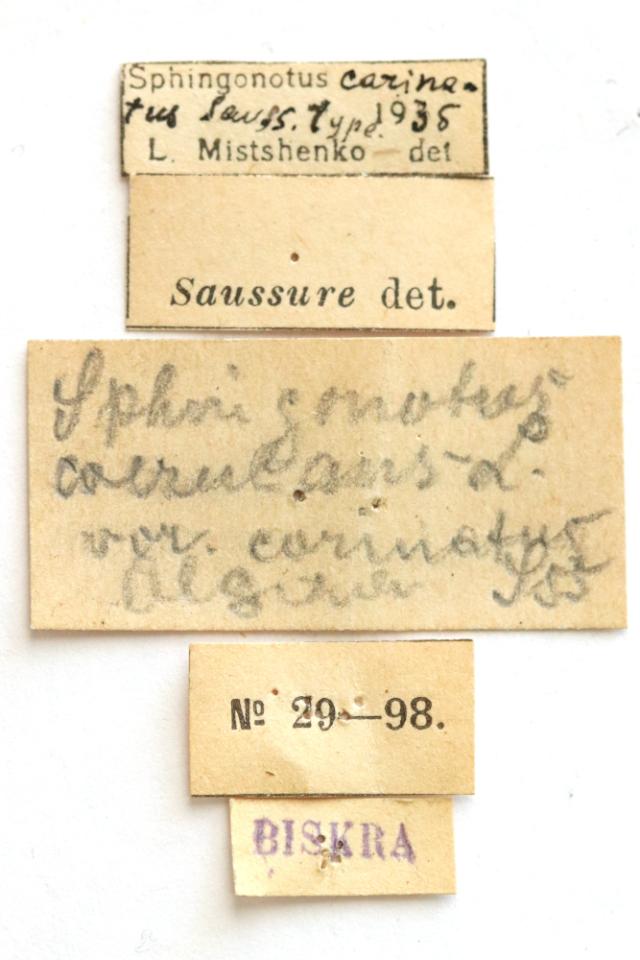 Sphingonotus carina-
tus Sauss. type. 1935
L. Mistshenko det
Saussure det.
Sphingonotus
coerulans L.
var. carinatus
Algier Sss
№ 29—98.
BISKRA